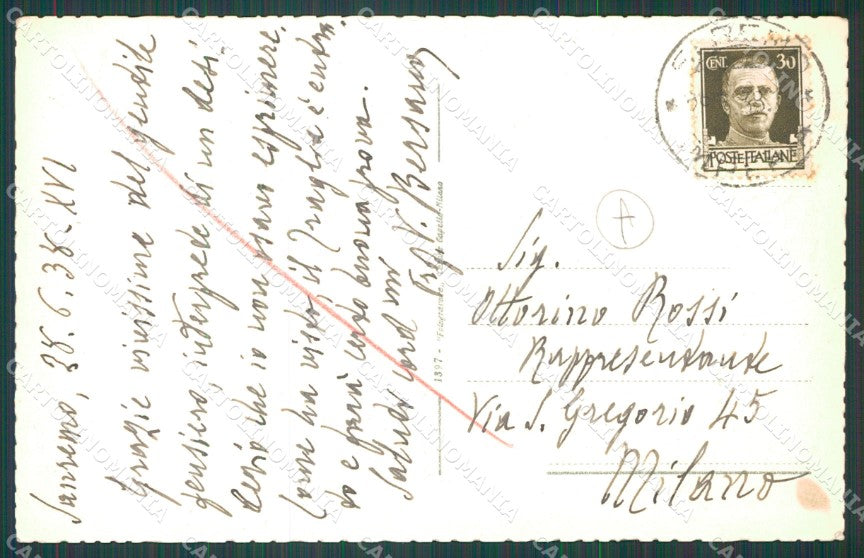 Sanremo, 28.6.38-XVI
Grazie vivissime del gentile
pensiero, interprete di un desi-
derio che io non osavo esprimere.
Come ha visto, il Traglia è entra-
to e farà certo buona prova.
Saluti cord.mi
Sig.
Ottorino Rossi
Rappresentante
Via S. Gregorio 45
Milano
CENT. 30
POSTE ITALIANE
1397 -
Milano
A
CARTOLINOMANIA